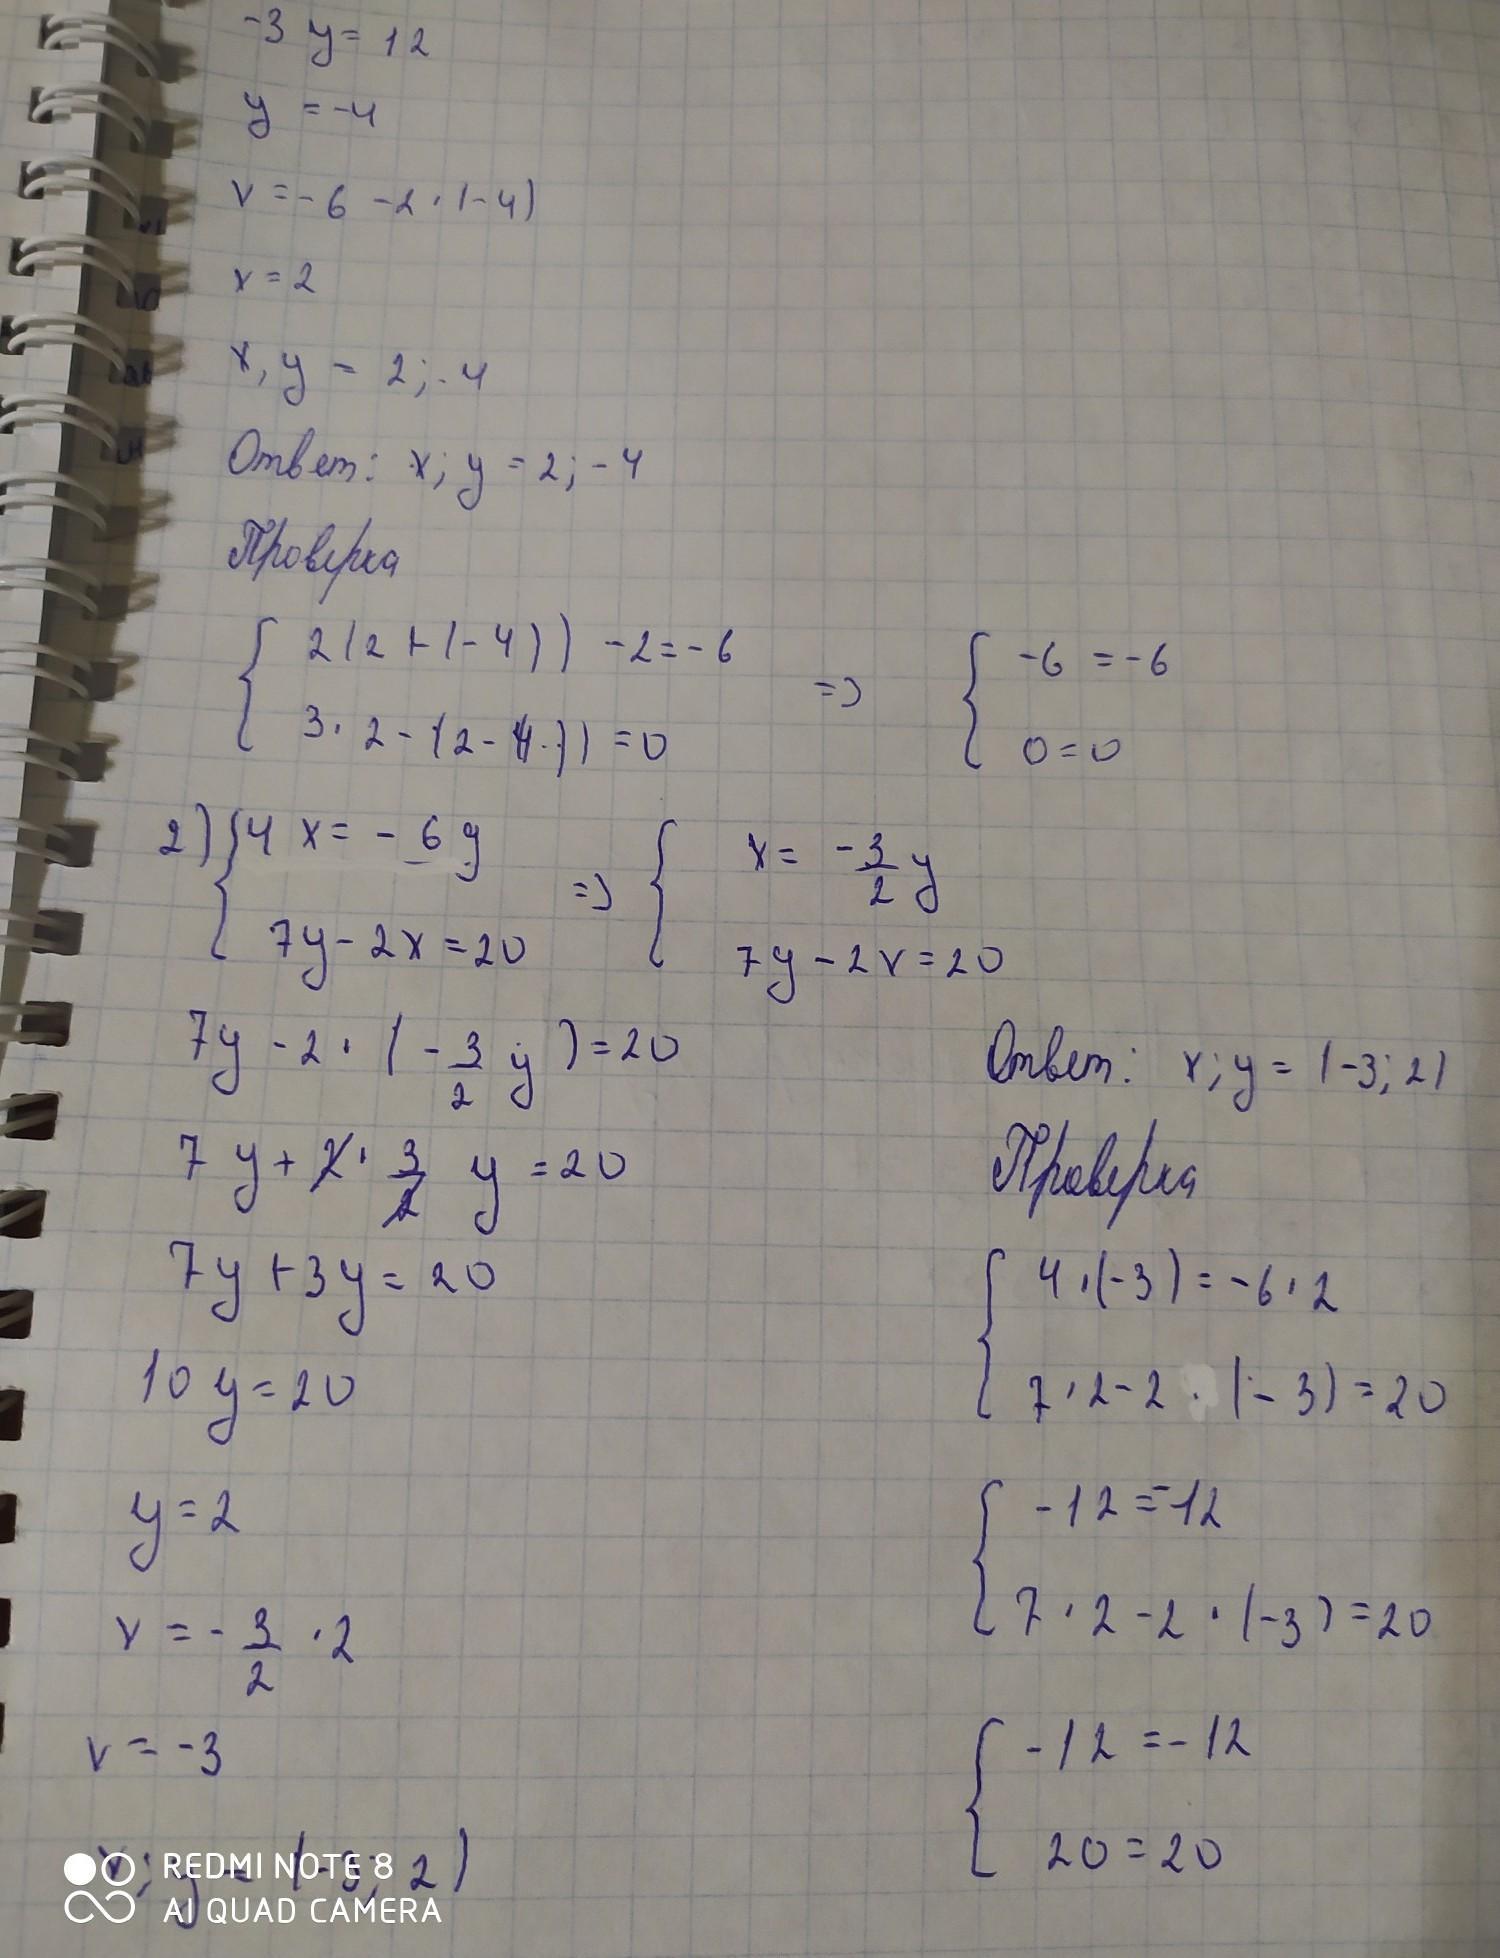 -3 y = 12
y = -4
x = -6 -2 · (-4)
x = 2
x, y = 2; -4
Ответ: x; y = 2; -4
Проверка
{ 2(2+(-4)) -2 = -6 => { -6 = -6
3 · 2 - (2-4·)) = 0 0 = 0
2) { 4 x = - 6 y => { x = -3/2 y
7y - 2x = 20 7y - 2x = 20
7y - 2 · (-3/2 y) = 20
7 y + 2 · 3/2 y = 20
7y + 3y = 20
10 y = 20
y = 2
x = -3/2 · 2
x = -3
x; y = (-3; 2)
Ответ: x; y = (-3; 2)
Проверка
{ 4 · (-3) = -6 · 2
7 · 2 - 2 · (-3) = 20
{ -12 = -12
7 · 2 - 2 · (-3) = 20
{ -12 = -12
20 = 20
REDMI NOTE 8
AI QUAD CAMERA